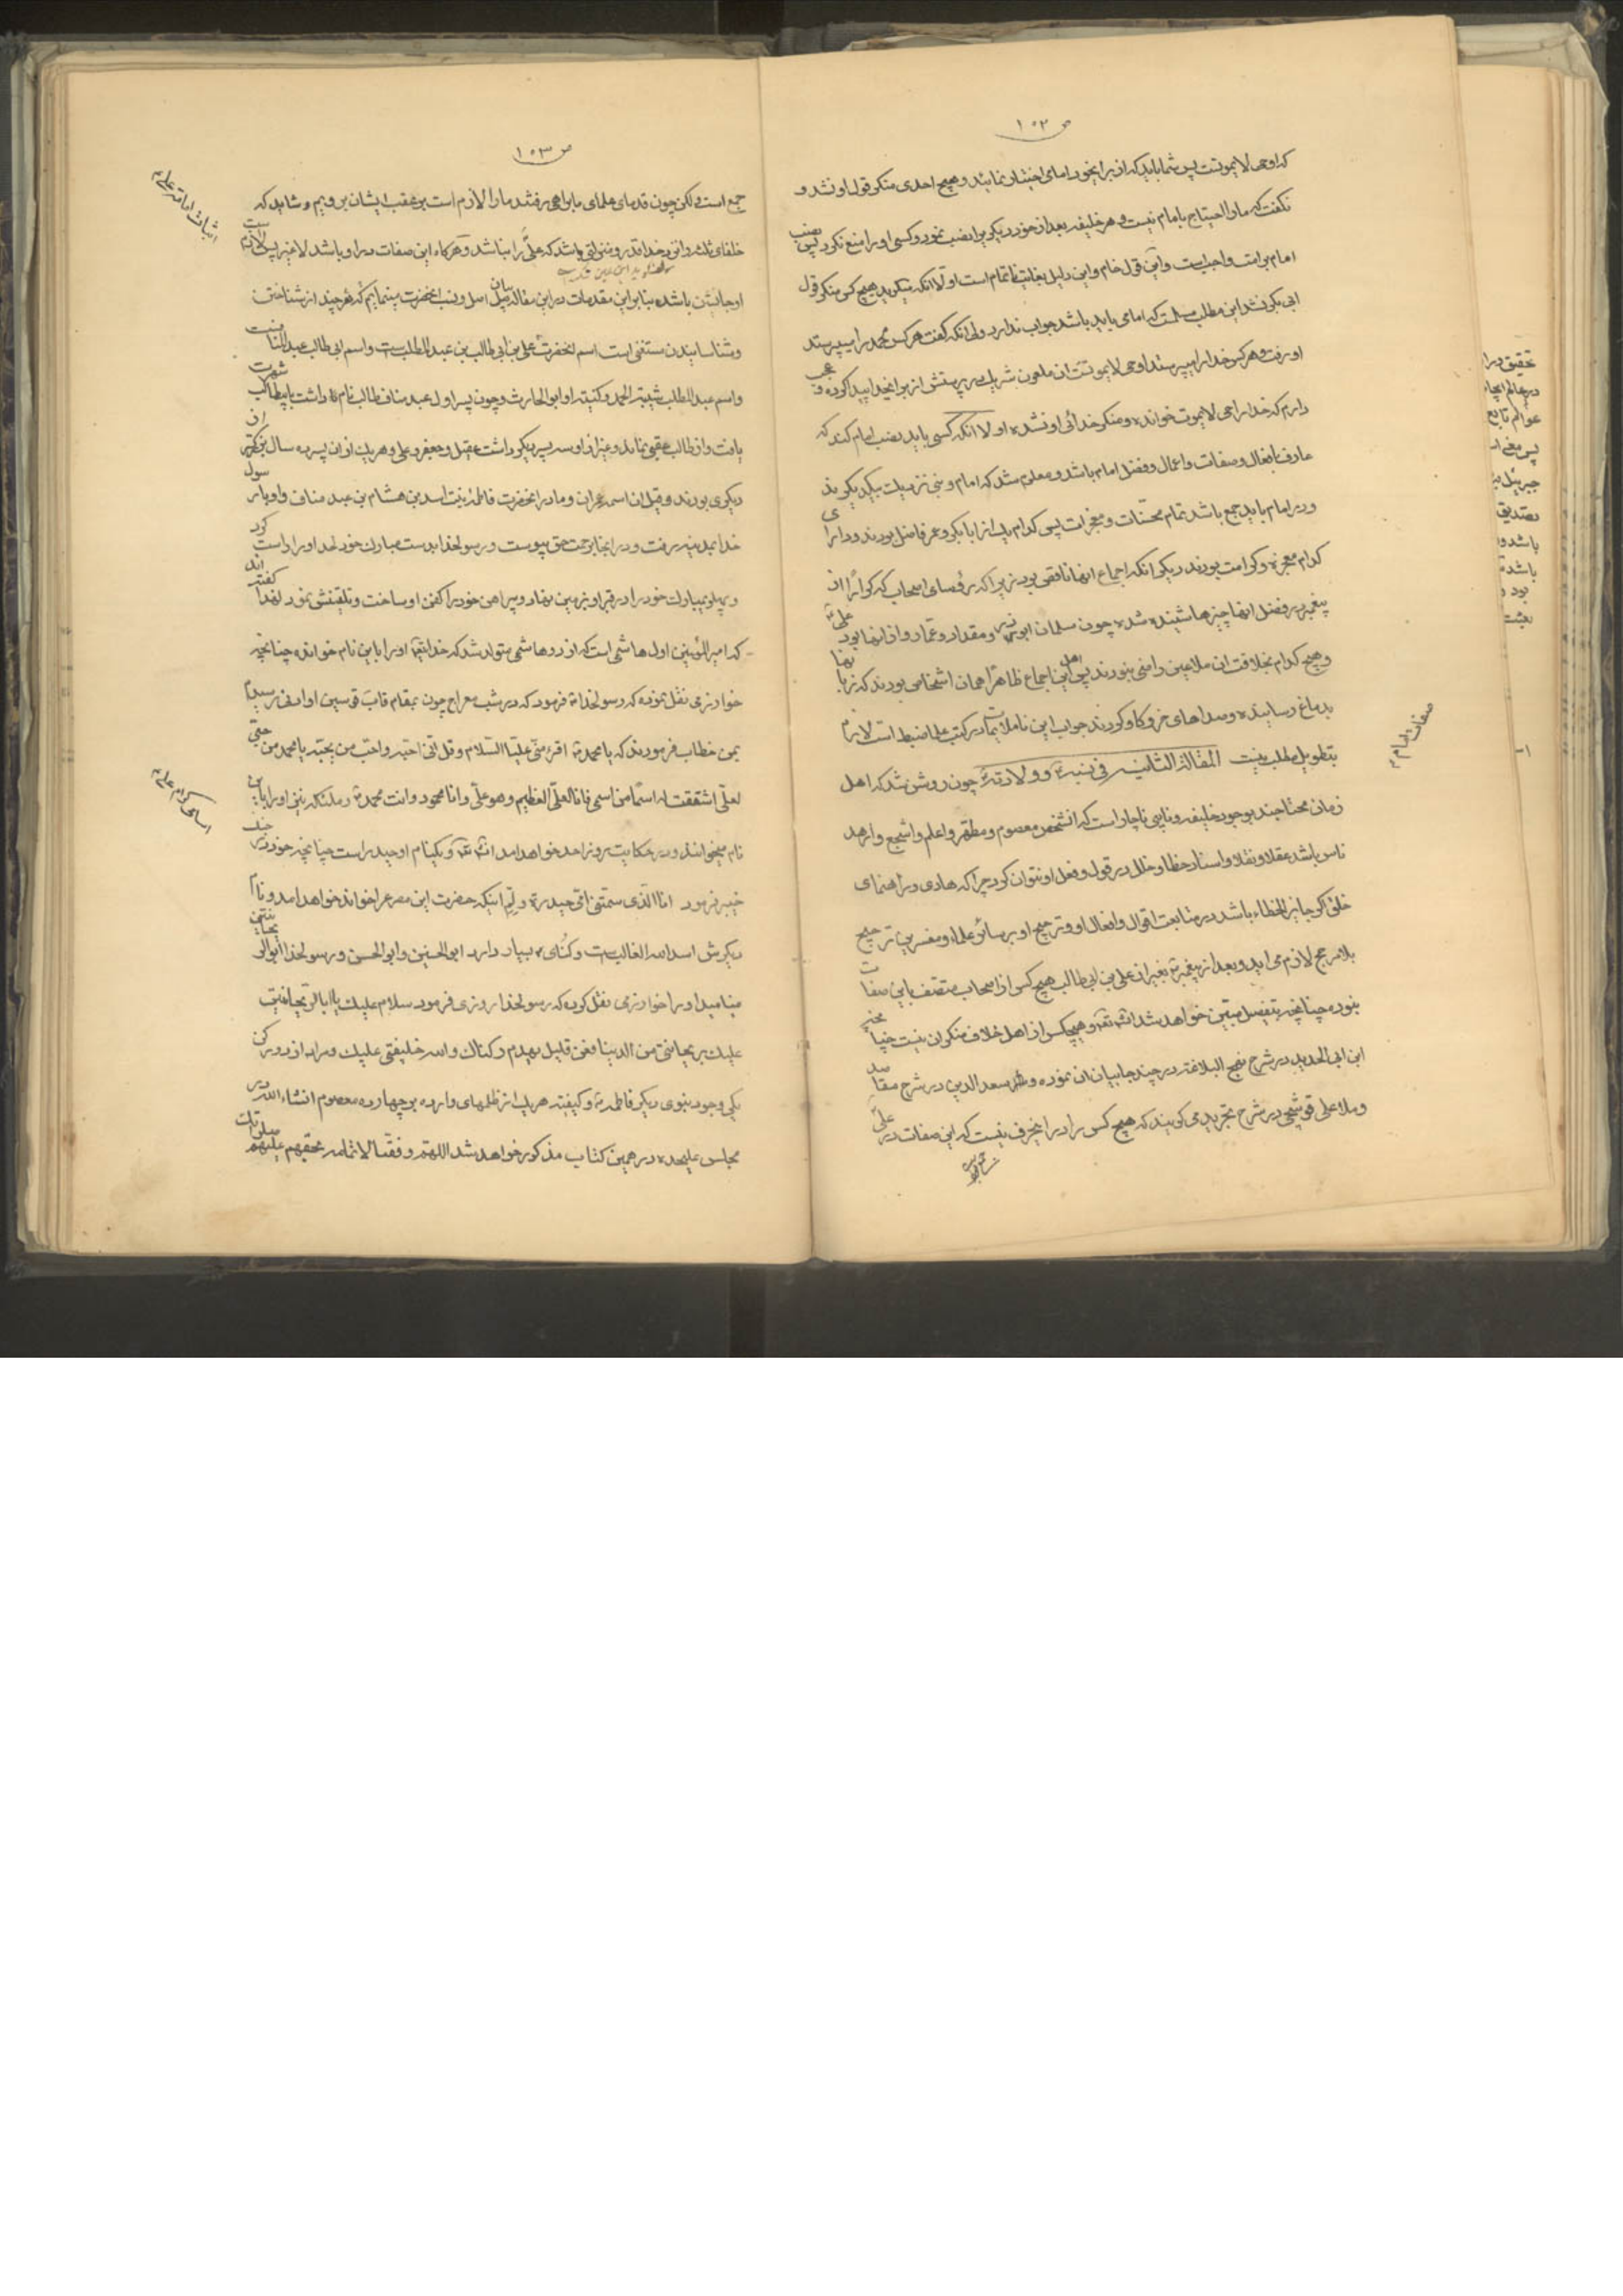 ص ۱۰۲
که او حی لایموتست پس شما باید که از برای خود امامی اختیار نمایند و هیچ احدی منکر قول او نشد و
نگفت که ما را احتیاج بامام نیست و هر خلیفه بعد از خود دیگری را نصب نمود و کسی او را منع نکرد پس نصب
امام بر امت واجبست و این قول خام و این دلیل بغایت ناتمام است اولا انکه میگوید هیچ کس منکر قول
ابی بکر نشد این مطلب مسلمست که امامی باید باشد جواب ندارد ولی انکه گفت هر کس محمد را میپرستد
او رفت و هر کس خدا را میپرستد او حی لایموتست ان ملعون شریک در پرستش از برای خدا پیدا کرده و عجب
دارم که خدا را حی لایموت خوانده و منکر خدائی او نشده اولا انکه کسی باید نصب امام کند که
عارف بافعال و صفات و اعمال و فضل امام باشد و معلوم شد که امام و نبی نزدیک بیکدیگرند
و در امام باید جمع باشد تمام محسنات و معجزات پس کدام یک از ابابکر و عمر فاضل بودند و دارای
کدام معجزه و کرامت بودند دیگر انکه اجماع انها ناقص بود زیرا که رؤسای اصحاب که کرارًا از
پیغمبر در فضل انها چیزها شنیده شده چون سلمان ابوذر و مقداد و عمار و از انها بود علی
و هیچ کدام بخلافت ان ملاعین راضی نبودند پس اهل این اجماع ظاهراً همان اشخاص بودند که زبانها
بدماغ رسانیده و صداهای خر و گاو کردند جواب این ناملایمات در کتب علما ضبط است لازم
بتطویل مطلب نیست المقالة الثانیه فی نسبه و ولادته چون روشن شد که اهل
زمان محتاجند بوجود خلیفه و نایبی ناچار است که انشخص معصوم و مطهر و اعلم و اشجع و ازهد
ناس باشد عقلا و نقلا و اسناد خطا و خلل در قول و فعل او نتوان کرد چرا که هادی و راهنمای
خلق اگر جایز الخطاء باشد در متابعت اقوال و افعال او و ترجیح او بر سائر علماء و مفسرین ترجیح
بلامرجح لازم می اید و بعد از پیغمبر بغیر از علی بن ابی طالب هیچ کس از اصحاب متصف باین صفات
نبوده چنانچه بتفصیل مبین خواهد شد انشا تعه و هیچکس از اهل خلاف منکر ان نیست چنانچه
ابن ابی الحدید در شرح نهج البلاغه در چند جا بیان ان نموده و ملا سعد الدین در شرح مقاصد
و ملا علی قوشچی در شرح تجرید می گویند که هیچ کس را در این حرف نیست که این صفات در علی
صفات امام
ص ۱۰۳
جمع است ولکن چون قدمای علمای ما براهی رفتند ما را لازم است بر عقب ایشان برویم و شاید که
خلفای ثلث را نزد خدا قدر و منزلتی باشد که علی را نباشد و هرگاه این صفات در او باشد لا غیر پس لازم است
او جانشین باشد بنا بر این مقدمات در این مقاله بیان اصل و نسب انحضرت مینمایم گه هر چند از شناختن
و شناسایندن مستغنی است اسم انحضرت علی بن ابی طالب بن عبد المطلب است و اسم ابی طالب عبد مناف است
و اسم عبد المطلب شیبة الحمد و کنیه او ابو الحارث و چون پسر اول عبد مناف طالب نام داشت بابیطالب شهرت
یافت و از طالب عقبی نماند و غیر از او سه پسر دیگر داشت عقیل و جعفر و علی و هریک از ان پسر ده سال بزرگتر از
دیگری بودند و قیل ان اسمه عمران و مادر انحضرت فاطمه بنت اسد بن هشام بن عبد مناف و او با رسول
خدا بمدینه رفت و در انجا برحمت حق پیوست و رسولخدا بدست مبارک خود لحد او را راست کرد
و پهلوی مبارک خود را در قبر او بزمین نهاد و پیراهن خود را کفن او ساخت و تلقینش نمود لهذا گفته اند
که امیرالمؤمنین اول هاشمی است که از دو هاشمی متولد شد که خدایتعالی او را باین نام خوانده چنانچه
خوارزمی نقل نموده که رسولخدا فرمود که در شب معراج چون بمقام قاب قوسین او ادنی رسیدم
بمن خطاب فرمودند که یا محمد اقرء منی علیّا السّلام و قل انّی احبّه و احبّ من یحبّه یا محمد من حبّی
لعلّی اشتققت له اسمًا من اسمی فانا العلیّ العظیم و هو علیّ و انا محمود و انت محمد و ملئکه نیز او را باین
نام میخوانند و در حکایت روز احد خواهد امد انشا تعه و یکنام او حیدر است چنانچه خود در جنگ
خیبر فرمود انا الّذی سمّتنی امّی حیدرة و تتمه اینکه حضرت این مصرع را خواند خواهد امد و نام
دیگرش اسد الله الغالب است و کنای بسیار دارد ابو الحسنین و ابو الحسن و رسولخدا ابو الریحانتین
مینامید او را خوارزمی نقل کرده که رسولخدا روزی فرمود سلام علیک یا ابا الریحانتین
علیک بریحانتی من الدنیا فعن قلیل یهدم رکناک و الله خلیفتی علیک و مراد از دو رکن
یکی وجود نبوی دیگر فاطمه و کیفیة هریک از ظلمهای وارده بر چهارده معصوم انشاء الله در
مجلس علیحده در همین کتاب مذکور خواهد شد اللهم وفقنا لاتمامه بحقهم علیهم صلواتک
اثبات امامة علی
اسامی گرام علی